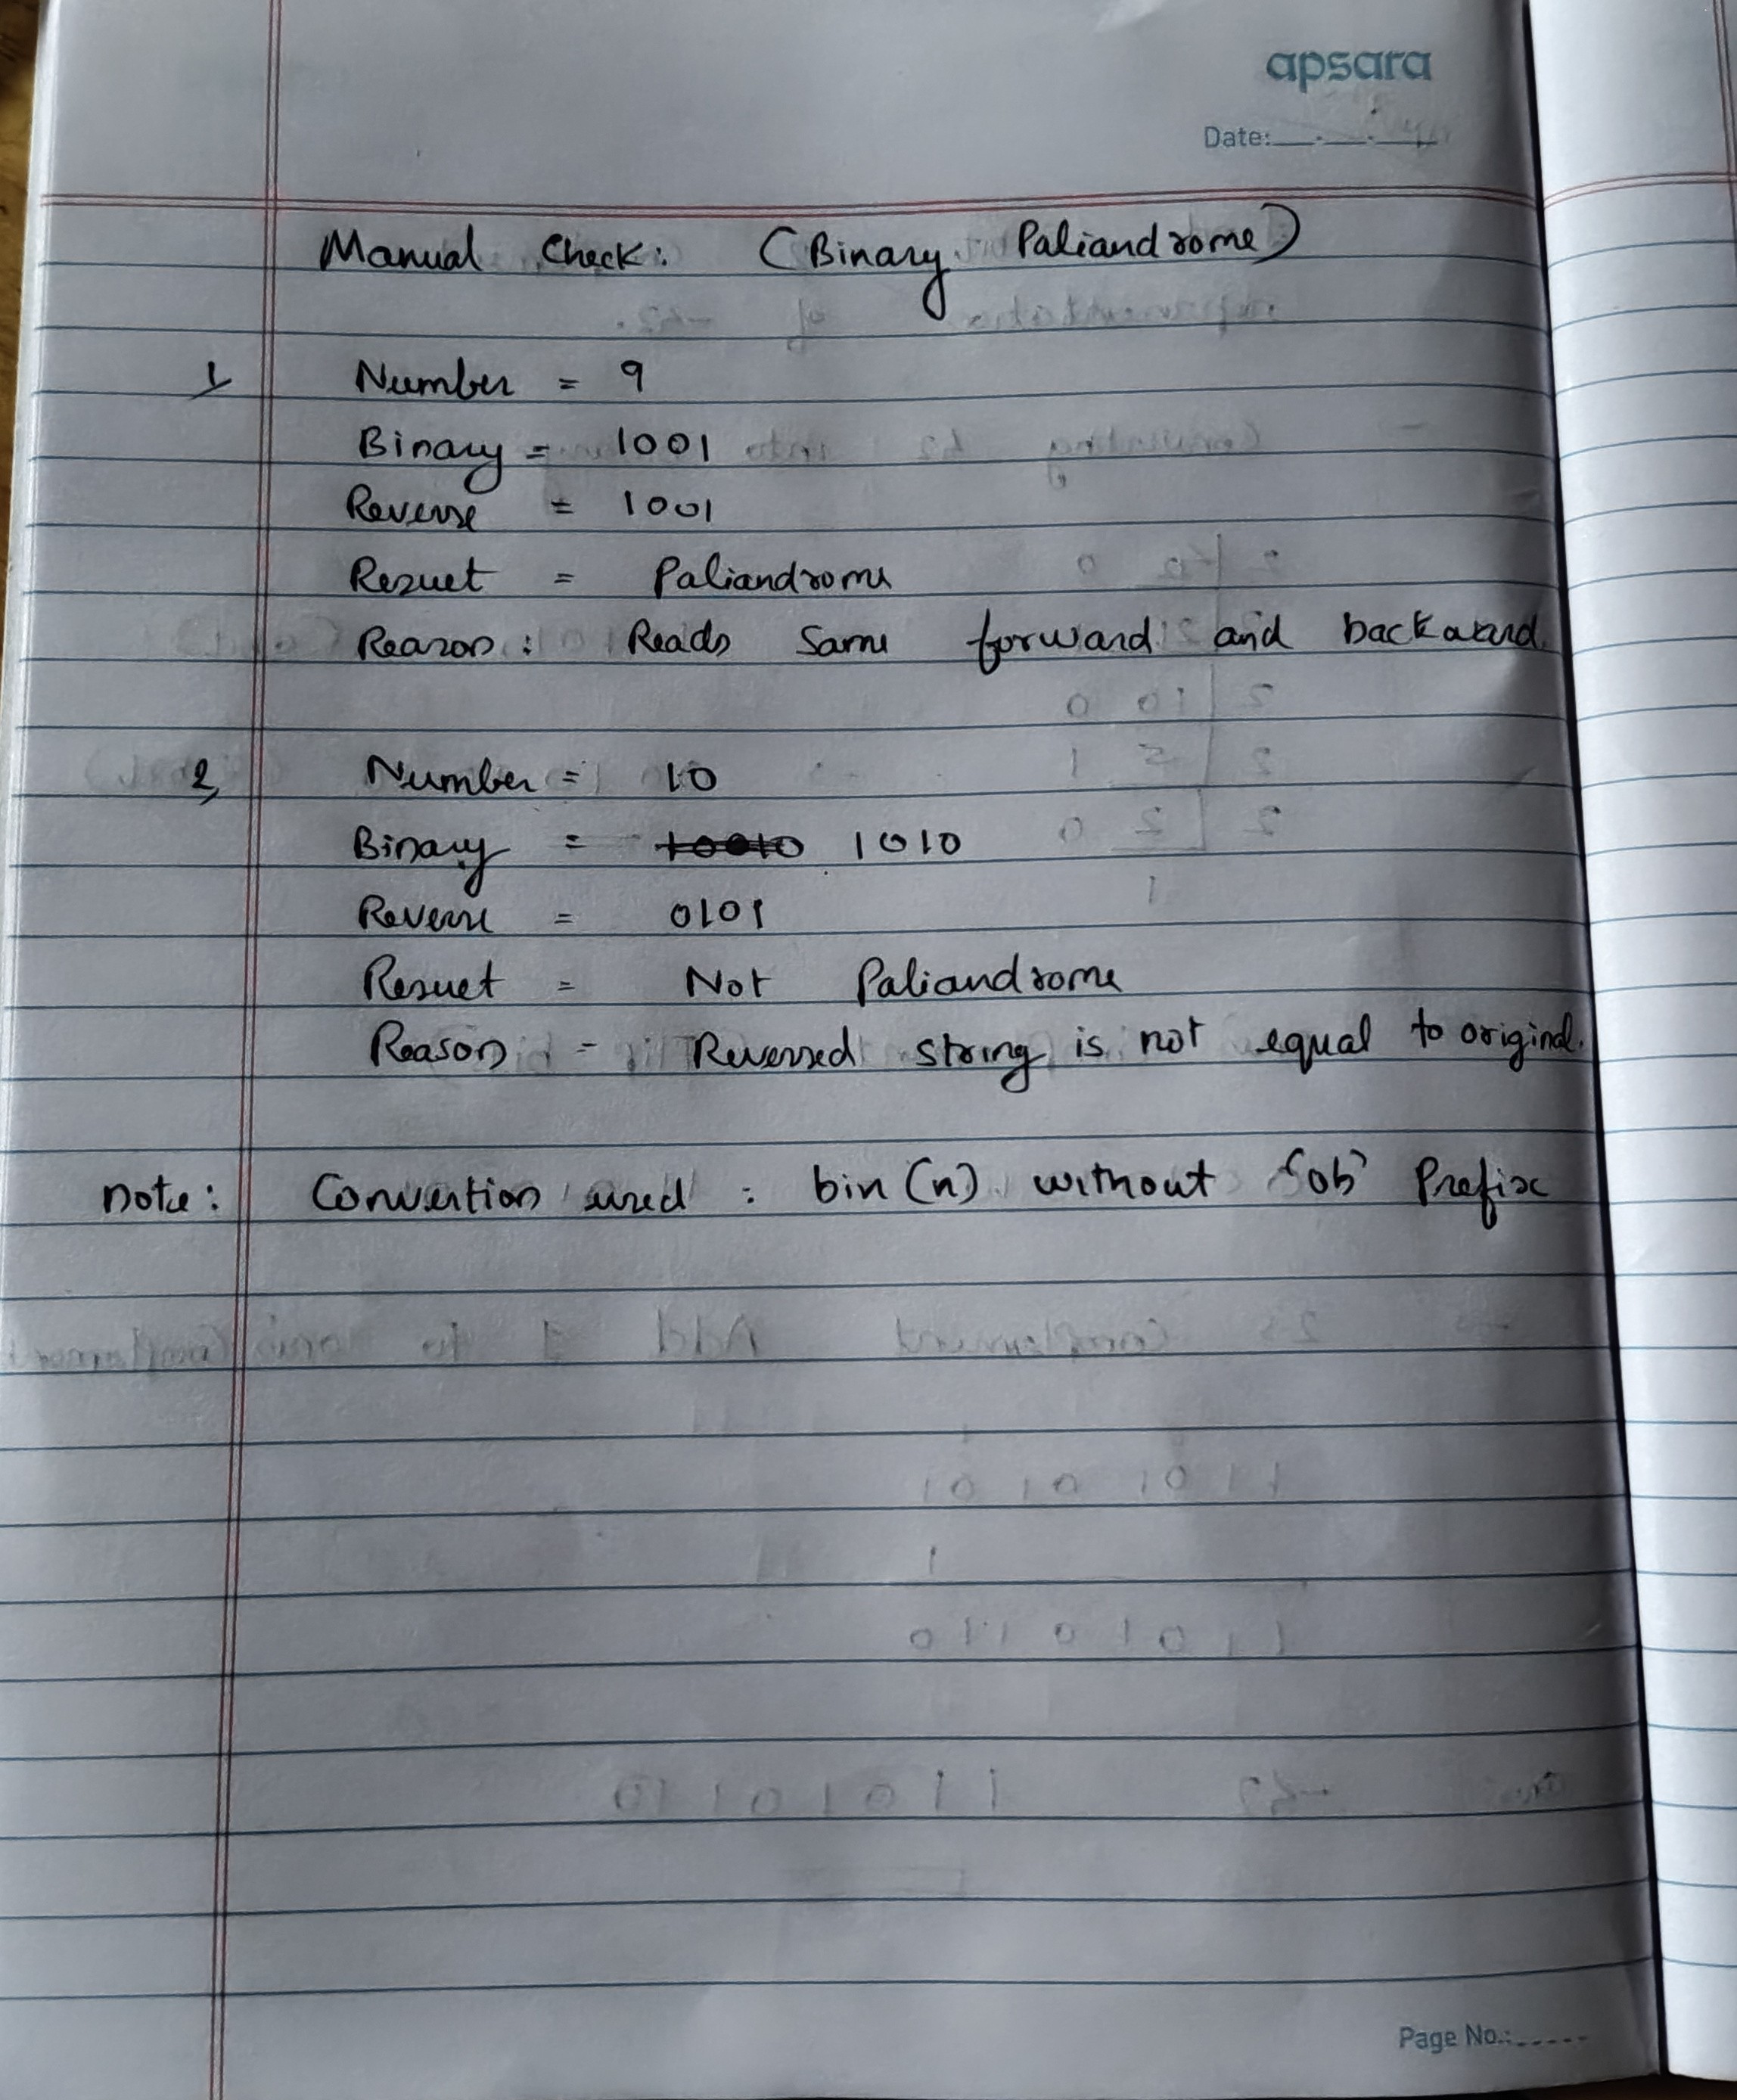 apsara
Date:
Manual Check: (Binary Paliandrome)
1, Number = 9
Binary = 1001
Reverse = 1001
Result = Paliandrome
Reason: Reads Same forward and backward.
2, Number = 10
Binary = 10010 1010
Reverse = 0101
Result = Not Paliandrome
Reason = Reversed string is not equal to original.
note: Convention used : bin(n) without '0b' Prefix
Page No.: